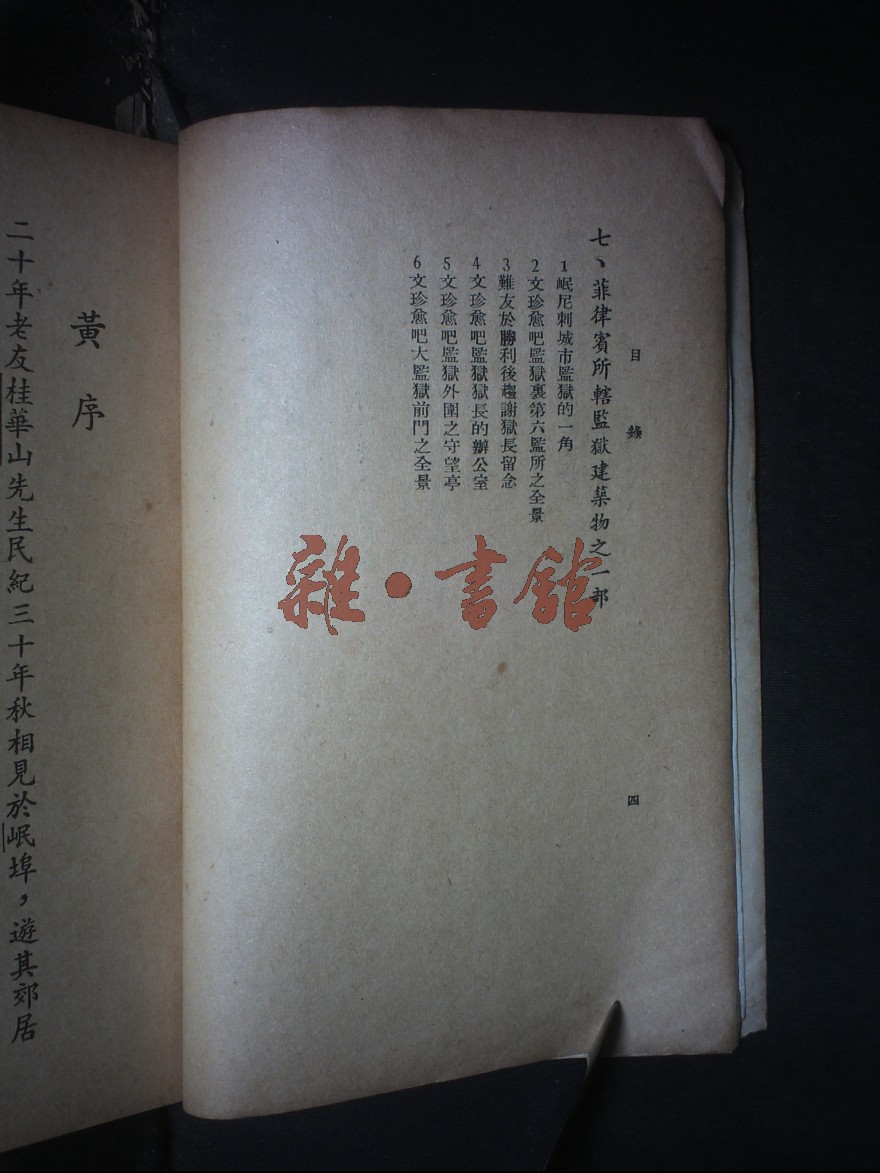 目錄
七、菲律賓所轄監獄建築物之一部
1岷尼刺城市監獄的一角
2文珍愈吧監獄裏第六監所之全景
3難友於勝利後趨謝獄長留念
4文珍愈吧監獄獄長的辦公室
5文珍愈吧監獄外圍之守望亭
6文珍愈吧大監獄前門之全景
四
雜·書館
黃序
二十年老友桂華山先生民紀三十年秋相見於岷埠，遊其郊居